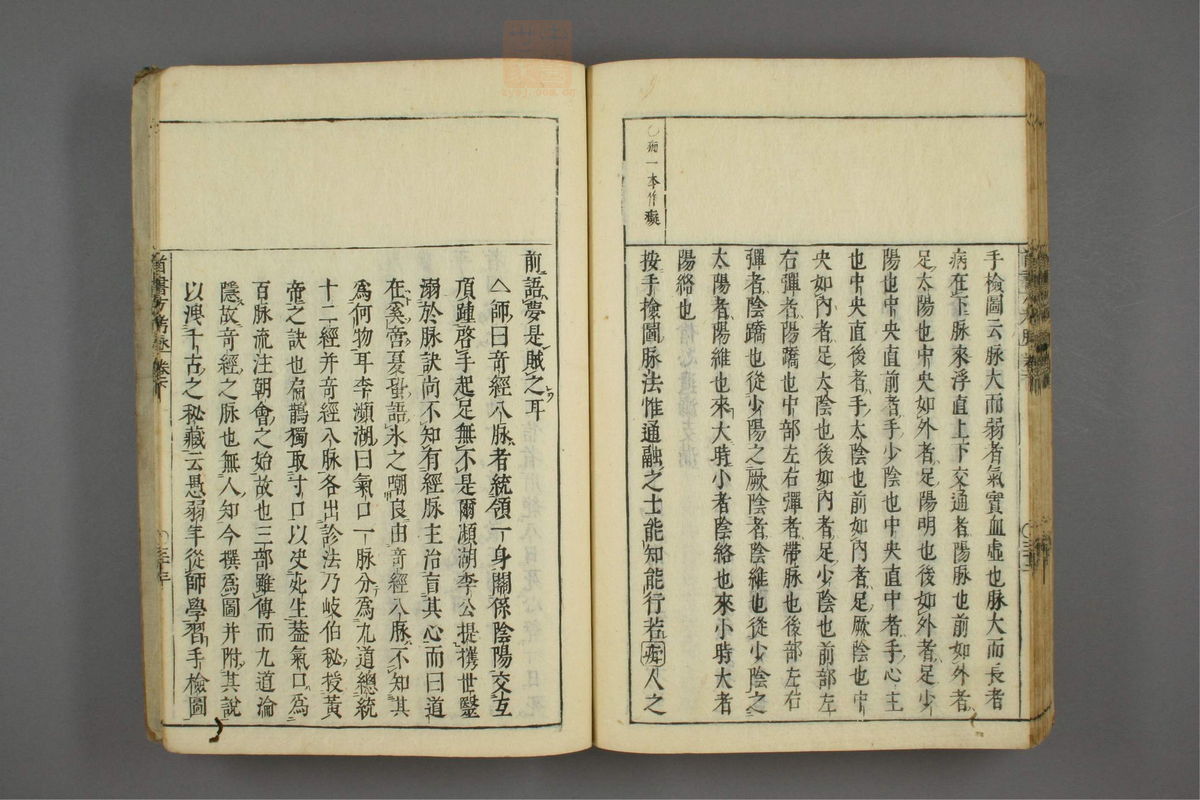 〇痴一本作癡
手檢圖云脉大而弱者氣實血虛也脉大而長者
病在下脉來浮直上下交通者陽脉也前如外者
足太陽也中央如外者足陽明也後如外者足少
陽也中央直前者手少陰也中央直中者手心主
也中央直後者手太陰也前如內者足厥陰也中
央如內者足太陰也後如內者足少陰也前部左
右彈者陽蹻也中部左右彈者帶脉也後部左右
彈者陰蹻也從少陽之厥陰者陰維也從少陰之
太陽者陽維也來大時小者陰絡也來小時大者
陽絡也
按手檢圖脉法惟通融之士能知能行若痴人之
前語夢是賊之耳
師曰奇經八脉者統領一身關係陰陽交互
頂踵啓手起足無不是爾瀕湖李公提攜世毉
溺於脉訣尚不知有經脉主治盲其心而曰道
在奚啻夏蟲語氷之嘲良由奇經八脉不知其
爲何物耳李瀕湖曰氣口一脉分爲九道總統
十二經并奇經八脉各出診法乃岐伯秘授黃
帝之訣也扁鵲獨取寸口以决死生蓋氣口爲
百脉流注朝會之始故也三部雖傳而九道淪
隱故奇經之脉也無人知今撰爲圖并附其說
以洩千古之秘藏云愚弱年從師學習手檢圖